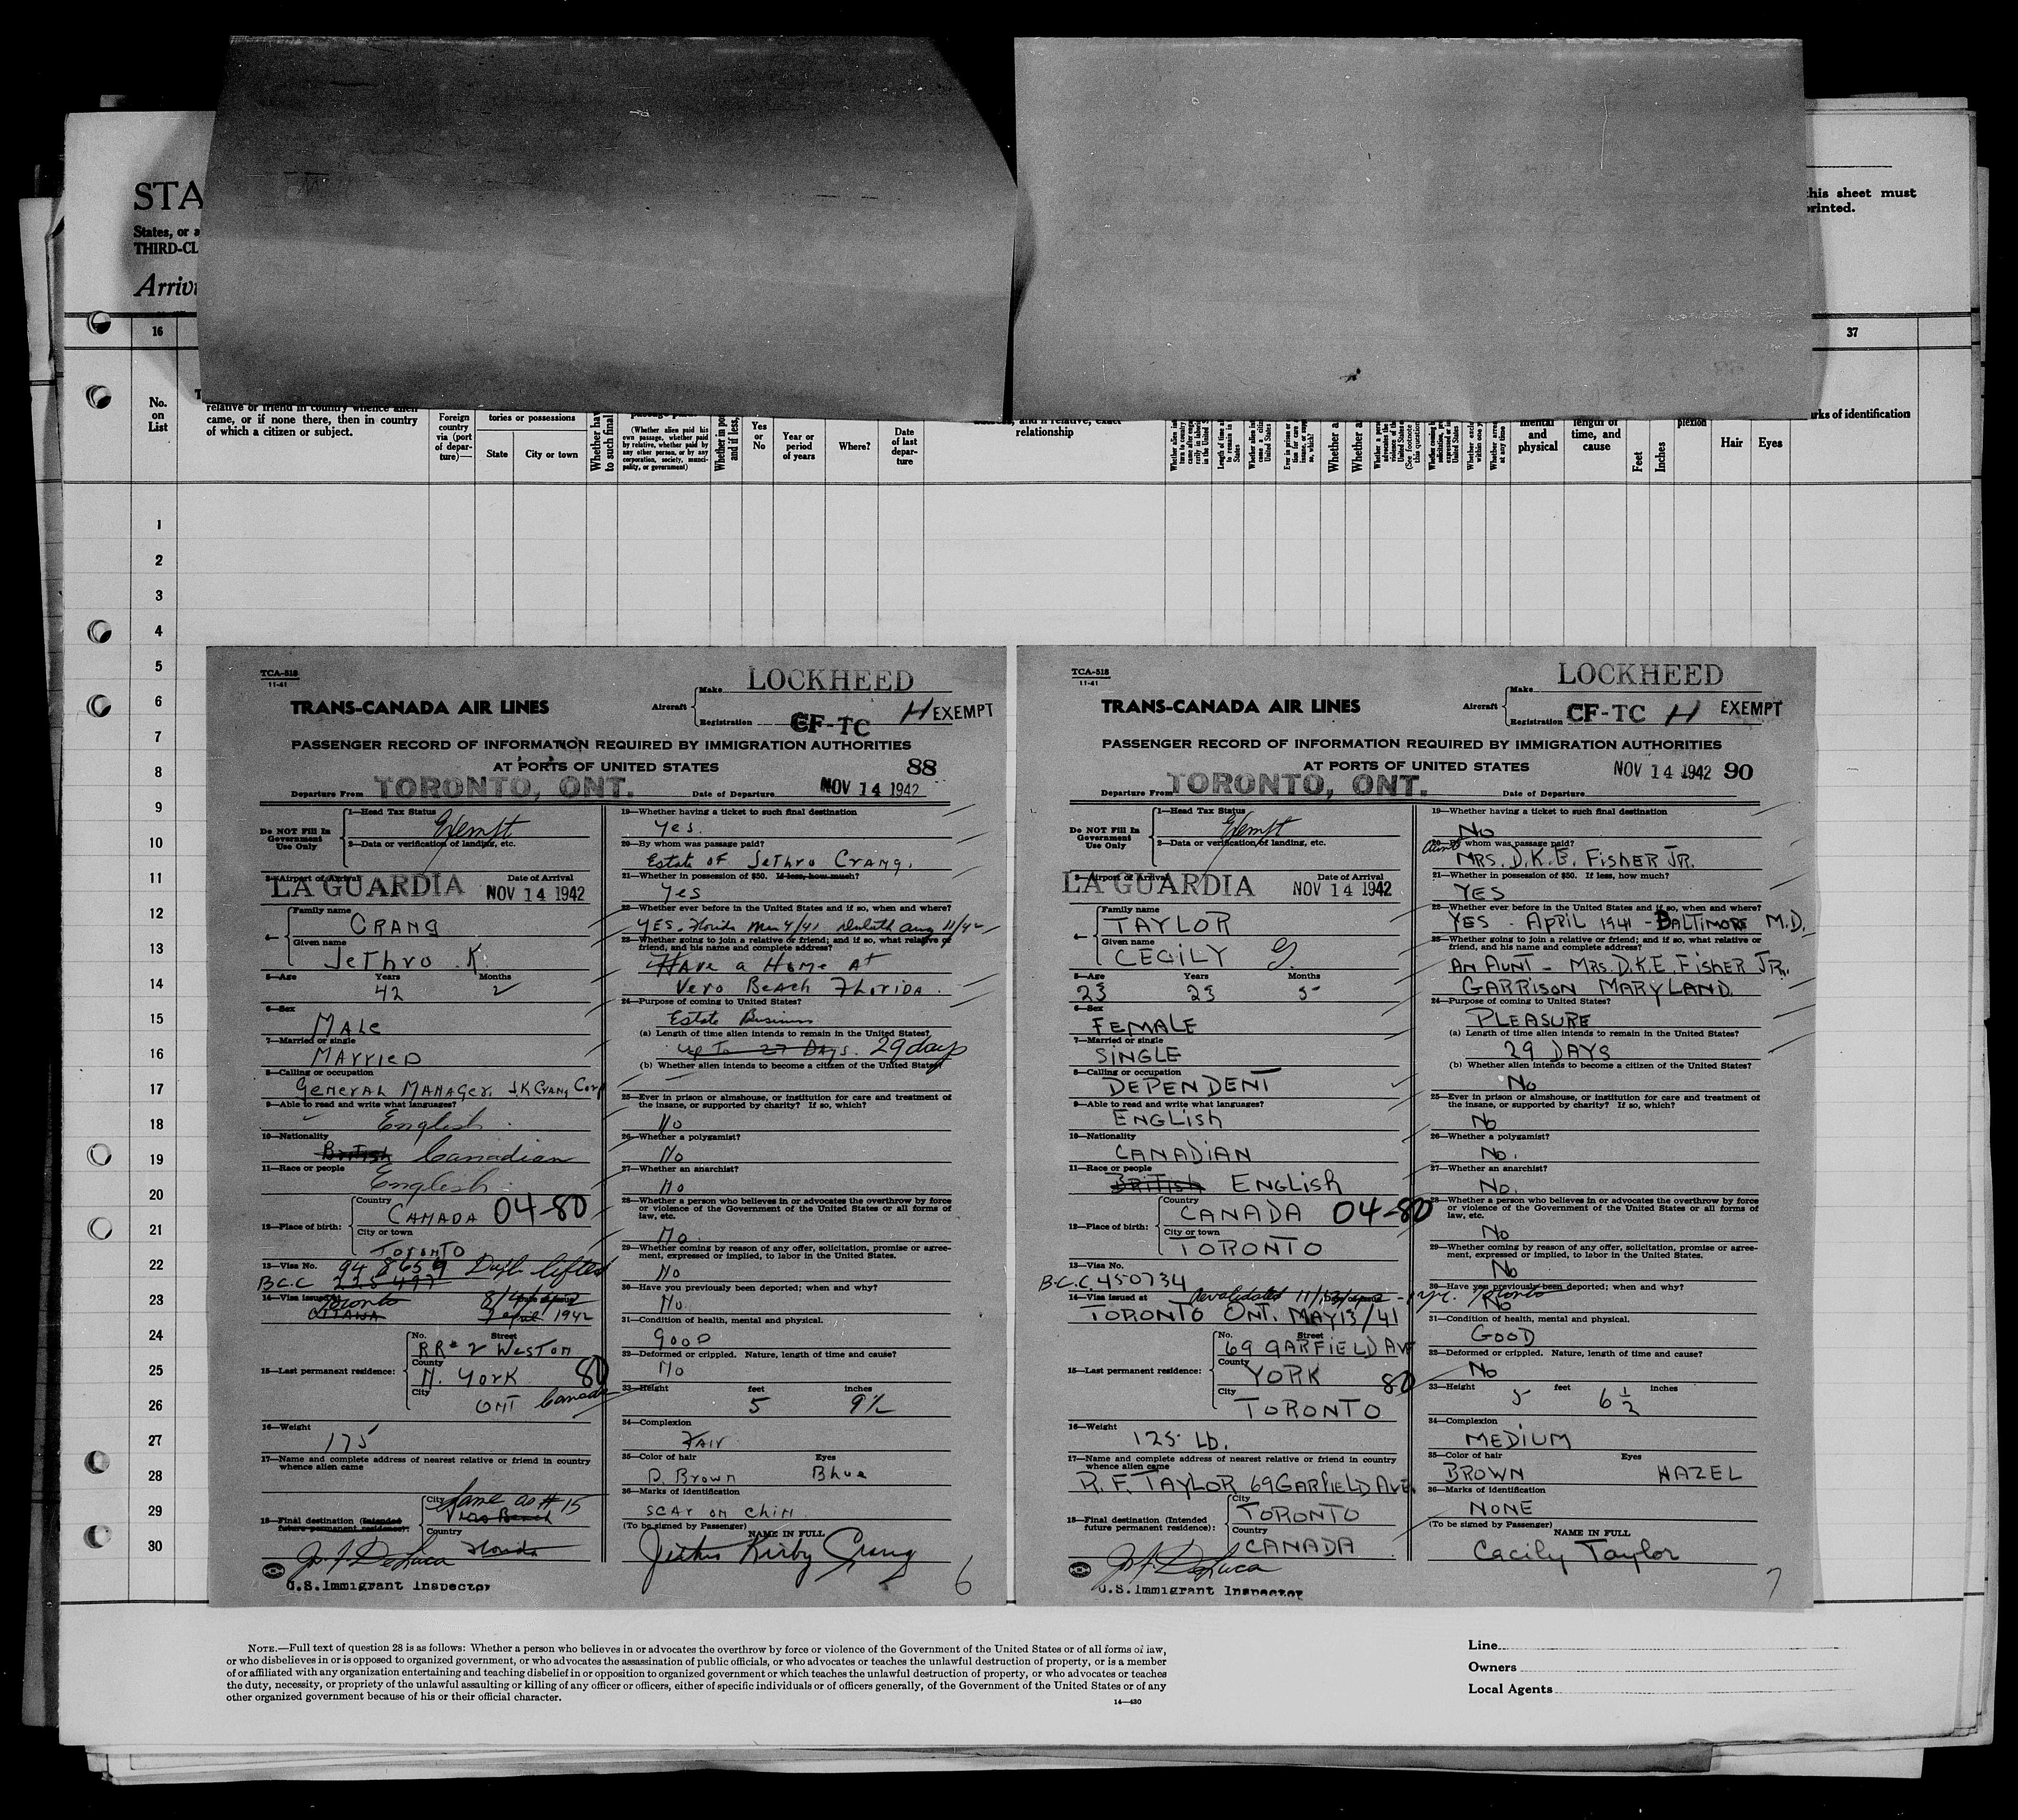 STA
States, or a
THIRD-CL
Arriv
this sheet must
printed.
16
37
No.
on
List
relative or friend in country whence alien
came, or if none there, then in country
of which a citizen or subject.
Foreign
country
via (port
of depar-
ture)—
tories or possessions
State
City or town
(Whether alien paid his
own passage, whether paid
by relative, whether paid by
any other person, or by any
corporation, society, munici-
pality, or government)
Yes
or
No
Year or
period
of years
Where?
Date
of last
depar-
ture
relationship
mental
and
physical
length of
time, and
cause
Feet
Inches
plexion
Hair
Eyes
rks of identification
1
2
3
4
5
6
7
8
9
10
11
12
13
14
15
16
17
18
19
20
21
22
23
24
25
26
27
28
29
30
TCA-518
11-41
LOCKHEED
TRANS-CANADA AIR LINES
Aircraft
Make
Registration CF-TC H EXEMPT
PASSENGER RECORD OF INFORMATION REQUIRED BY IMMIGRATION AUTHORITIES
AT PORTS OF UNITED STATES
88
Departure From TORONTO, ONT.
Date of Departure NOV 14 1942
Do NOT Fill In
Government
Use Only
1—Head Tax Status
Exempt
2—Data or verification of landing, etc.
3—Airport of Arrival
LA GUARDIA
Date of Arrival
NOV 14 1942
4—
Family name
CRANG
Given name
JeThro K.
5—Age
Years
Months
42
2
6—Sex
MALe
7—Married or single
MArrieD
8—Calling or occupation
General MANAGer. J.K Crang Corp
9—Able to read and write what languages?
English
10—Nationality
British Canadian
11—Race or people
English
12—Place of birth:
Country
CANADA 04-80
City or town
Toronto
13—Visa No. 94 8659 Dupl. lifted
B.C.C 225497
14—Visa issued at
Toronto
8/4/42
OTTAWA
7 april 1942
15—Last permanent residence:
No.
Street
RR# 2 Weston
County
N. York 80
City
ONT Canada
16—Weight
175
17—Name and complete address of nearest relative or friend in country
whence alien came
18—Final destination (Intended
future permanent residence):
City
Same as # 15
Vero Beach
Country
Florida
J. F. DeLuca
U.S. Immigrant Inspector
19—Whether having a ticket to such final destination
Yes.
20—By whom was passage paid?
Estate of JeThro Crang.
21—Whether in possession of $50. If less, how much?
Yes
22—Whether ever before in the United States and if so, when and where?
YES. Florida Mar 4/41. Duluth Aug 11/42
23—Whether going to join a relative or friend; and if so, what relative or
friend, and his name and complete address?
HAve a Home AT
Vero BeAch FLoriDA.
24—Purpose of coming to United States?
Estate Business
(a) Length of time alien intends to remain in the United States?
up To 27 DAys. 29 days
(b) Whether alien intends to become a citizen of the United States?
25—Ever in prison or almshouse, or institution for care and treatment of
the insane, or supported by charity? If so, which?
No
26—Whether a polygamist?
No
27—Whether an anarchist?
No
28—Whether a person who believes in or advocates the overthrow by force
or violence of the Government of the United States or all forms of
law, etc.
No.
29—Whether coming by reason of any offer, solicitation, promise or agree-
ment, expressed or implied, to labor in the United States?
No
30—Have you previously been deported; when and why?
No.
31—Condition of health, mental and physical.
gooD
32—Deformed or crippled. Nature, length of time and cause?
No
33—Height
feet
inches
5
9½
34—Complexion
FAir
35—Color of hair
Eyes
D. Brown
Blue
36—Marks of identification
scar on chin
(To be signed by Passenger)
NAME IN FULL
Jethro Kirby Crang
6
TCA-518
11-41
LOCKHEED
TRANS-CANADA AIR LINES
Aircraft
Make
Registration CF-TC H EXEMPT
PASSENGER RECORD OF INFORMATION REQUIRED BY IMMIGRATION AUTHORITIES
AT PORTS OF UNITED STATES
NOV 14 1942 90
Departure From TORONTO, ONT.
Date of Departure
Do NOT Fill In
Government
Use Only
1—Head Tax Status
Exempt
2—Data or verification of landing, etc.
3—Airport of Arrival
LA GUARDIA
Date of Arrival
NOV 14 1942
4—
Family name
TAYLOR
Given name
CECILY G.
5—Age
Years
Months
23
23
5
6—Sex
FEMALE
7—Married or single
SINGLE
8—Calling or occupation
DEPENDENT
9—Able to read and write what languages?
ENGLISH
10—Nationality
CANADIAN
11—Race or people
BRITISH ENGLISH
12—Place of birth:
Country
CANADA 04-80
City or town
TORONTO
13—Visa No.
B.C.C 450734
14—Visa issued at
revalidated 11/13/42 - 1 yr. Toronto
TORONTO ONT. MAY 13/41
15—Last permanent residence:
No.
Street
69 GARFIELD AVE
County
YORK 80
City
TORONTO
16—Weight
125 Lb.
17—Name and complete address of nearest relative or friend in country
whence alien came
R. F. TAYLOR 69 GARFIELD AVE.
18—Final destination (Intended
future permanent residence):
City
TORONTO
Country
CANADA
J. F. DeLuca
U.S. Immigrant Inspector
19—Whether having a ticket to such final destination
No
20—By whom was passage paid?
Aunt MRS. D.K.E. FISHER JR.
21—Whether in possession of $50. If less, how much?
YES
22—Whether ever before in the United States and if so, when and where?
YES APRIL 1941 - BALTIMORE M.D.
23—Whether going to join a relative or friend; and if so, what relative or
friend, and his name and complete address?
AN AUNT - MRS. D.K.E. FISHER JR.
GARRISON MARYLAND
24—Purpose of coming to United States?
PLEASURE
(a) Length of time alien intends to remain in the United States?
29 DAYS
(b) Whether alien intends to become a citizen of the United States?
No
25—Ever in prison or almshouse, or institution for care and treatment of
the insane, or supported by charity? If so, which?
No
26—Whether a polygamist?
No.
27—Whether an anarchist?
No.
28—Whether a person who believes in or advocates the overthrow by force
or violence of the Government of the United States or all forms of
law, etc.
No
29—Whether coming by reason of any offer, solicitation, promise or agree-
ment, expressed or implied, to labor in the United States?
No
30—Have you previously been deported; when and why?
No
31—Condition of health, mental and physical.
GOOD
32—Deformed or crippled. Nature, length of time and cause?
No
33—Height
feet
inches
5
6 1/2
34—Complexion
MEDIUM
35—Color of hair
Eyes
BROWN
HAZEL
36—Marks of identification
NONE
(To be signed by Passenger)
NAME IN FULL
Cecily Taylor
7
NOTE.—Full text of question 28 is as follows: Whether a person who believes in or advocates the overthrow by force or violence of the Government of the United States or of all forms of law,
or who disbelieves in or is opposed to organized government, or who advocates the assassination of public officials, or who advocates or teaches the unlawful destruction of property, or is a member
of or affiliated with any organization entertaining and teaching disbelief in or opposition to organized government or which teaches the unlawful destruction of property, or who advocates or teaches
the duty, necessity, or propriety of the unlawful assaulting or killing of any officer or officers, either of specific individuals or of officers generally, of the Government of the United States or of any
other organized government because of his or their official character.
14—430
Line
Owners
Local Agents